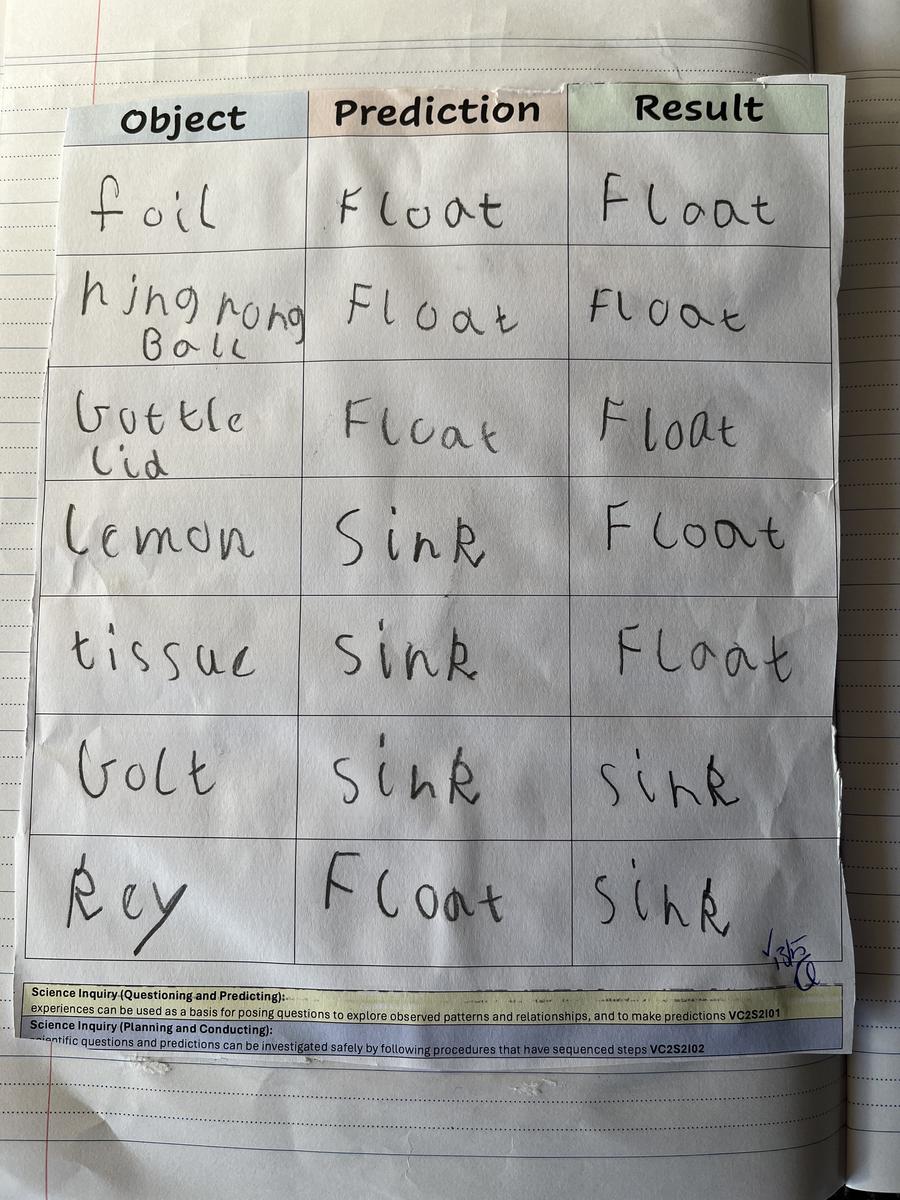 Object Prediction Result
foil Float Float
ping pong Float Float
Ball
bottle Float Float
lid
lemon Sink Float
tissue sink Float
bolt sink sink
key Float sink
Science Inquiry (Questioning and Predicting):
experiences can be used as a basis for posing questions to explore observed patterns and relationships, and to make predictions VC2S2I01
Science Inquiry (Planning and Conducting):
scientific questions and predictions can be investigated safely by following procedures that have sequenced steps VC2S2I02